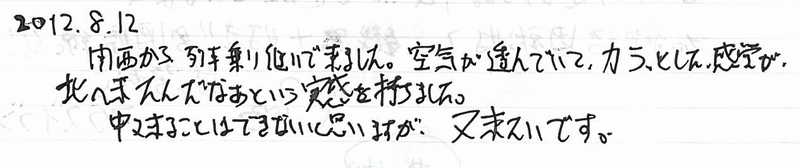 2012.8.12
関西から列車乗り継いで来ました。空気が澄んでいて、カラッとした感覚が、
北へ来たんだなあという実感を持ちました。
中々来ることはできないと思いますが、又来たいです。